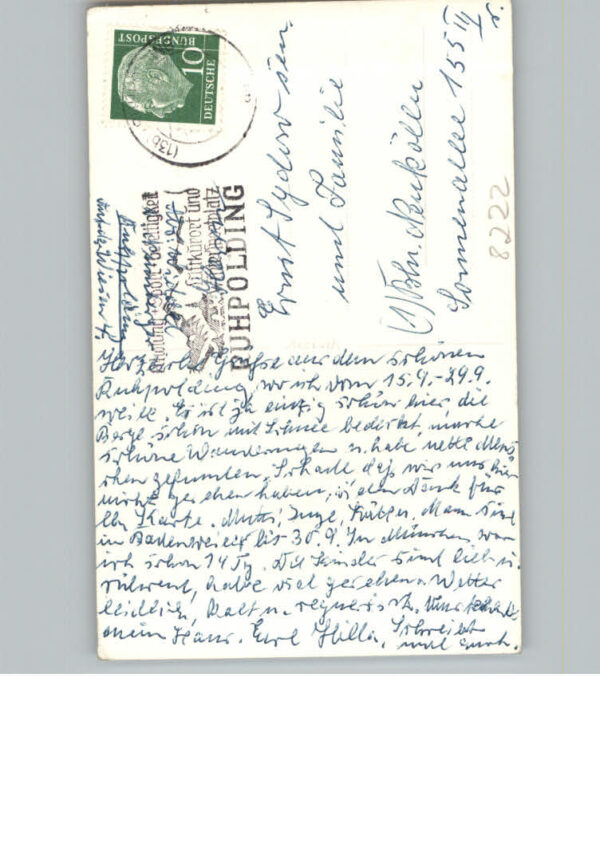 10
DEUTSCHE
BUNDESPOST
(13b)
Erholung · Sport · Geselligkeit
Luftkurort und
RUHPOLDING
Ernst Sydow sen.
und Familie
(1) Bln. Neukölln
Sonnenallee 155 II
r.
8222
Ruhpolding
Herzliche Grüsse aus dem schönen
Ruhpolding, wo ich vom 15.9.-29.9.
weile. Es ist ja einzig schön hier, die
Berge schon mit Schnee bedeckt, mache
schöne Wanderungen u. habe nette Men-
schen gefunden. Schade daß wir uns hier
nicht gesehen haben, den Dank für
Karte. Mutti, Inge, sind
in Badenweiler bis 30.9. In München war
ich schon 14 Tg. Die Kinder sind lieb u.
rührend, habe viel gesehen. Wetter
leidlich, kalt u. regnerisch.
mein Haus. Eure Hilla. Schreibt
mal auch.